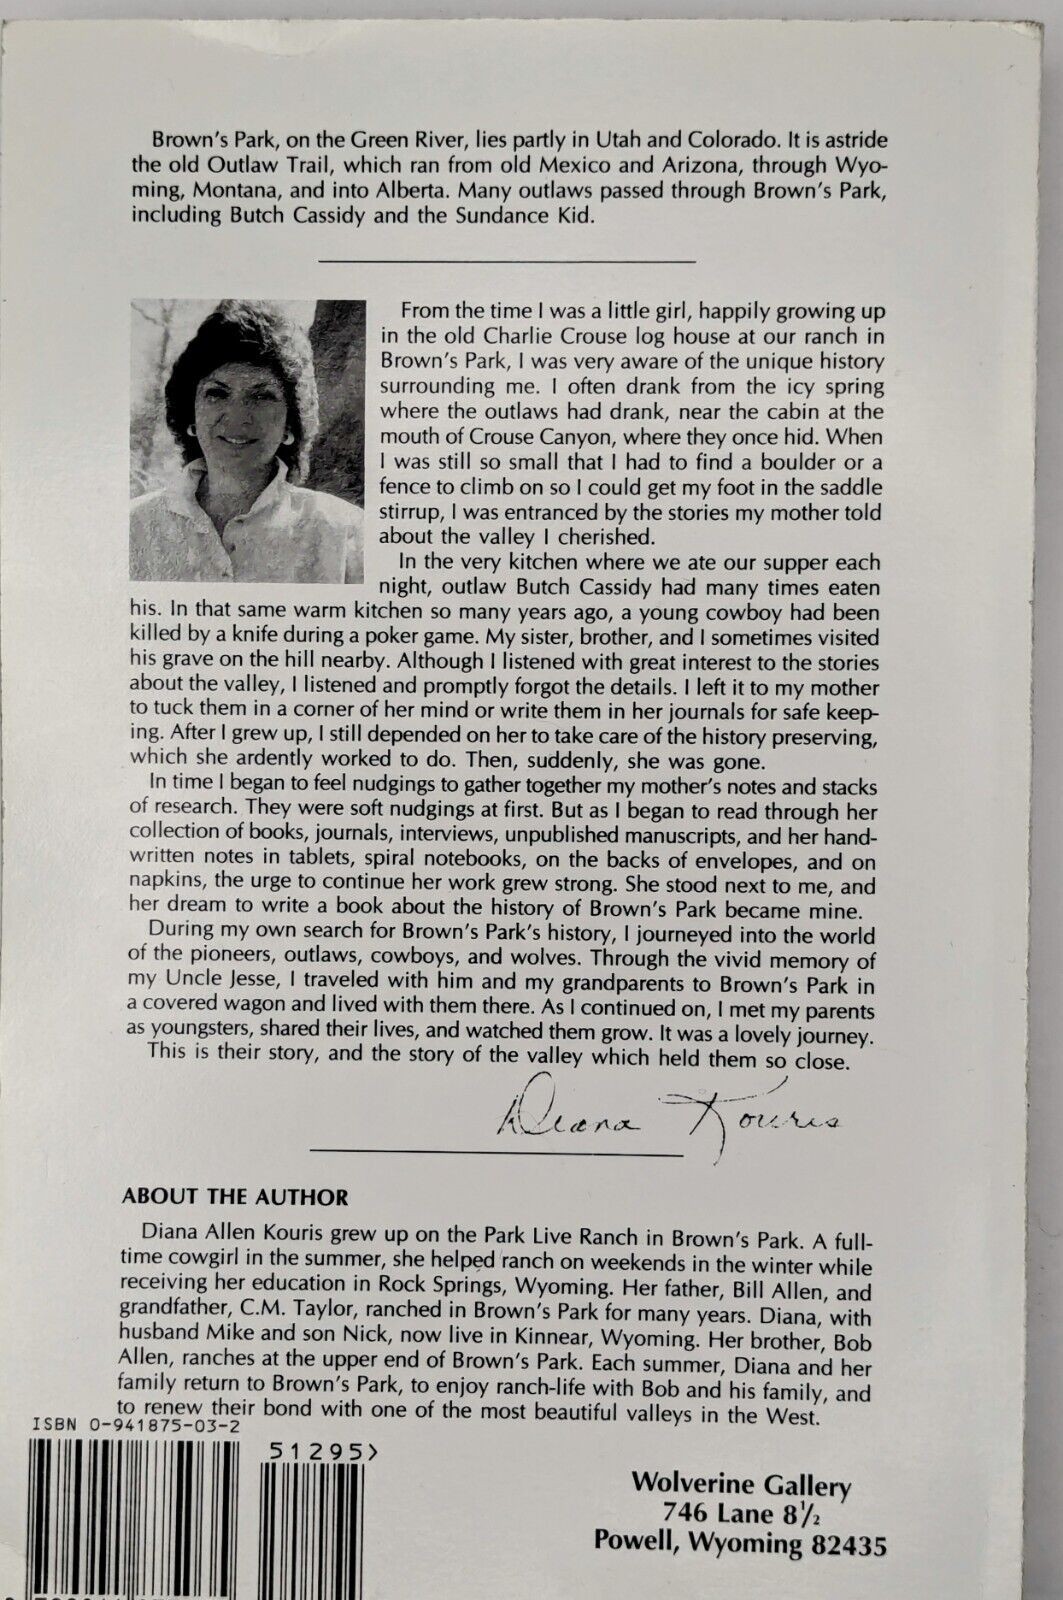 Brown's Park, on the Green River, lies partly in Utah and Colorado. It is astride
the old Outlaw Trail, which ran from old Mexico and Arizona, through Wyo-
ming, Montana, and into Alberta. Many outlaws passed through Brown's Park,
including Butch Cassidy and the Sundance Kid.
From the time I was a little girl, happily growing up
in the old Charlie Crouse log house at our ranch in
Brown's Park, I was very aware of the unique history
surrounding me. I often drank from the icy spring
where the outlaws had drank, near the cabin at the
mouth of Crouse Canyon, where they once hid. When
I was still so small that I had to find a boulder or a
fence to climb on so I could get my foot in the saddle
stirrup, I was entranced by the stories my mother told
about the valley I cherished.
In the very kitchen where we ate our supper each
night, outlaw Butch Cassidy had many times eaten
his. In that same warm kitchen so many years ago, a young cowboy had been
killed by a knife during a poker game. My sister, brother, and I sometimes visited
his grave on the hill nearby. Although I listened with great interest to the stories
about the valley, I listened and promptly forgot the details. I left it to my mother
to tuck them in a corner of her mind or write them in her journals for safe keep-
ing. After I grew up, I still depended on her to take care of the history preserving,
which she ardently worked to do. Then, suddenly, she was gone.
In time I began to feel nudgings to gather together my mother's notes and stacks
of research. They were soft nudgings at first. But as I began to read through her
collection of books, journals, interviews, unpublished manuscripts, and her hand-
written notes in tablets, spiral notebooks, on the backs of envelopes, and on
napkins, the urge to continue her work grew strong. She stood next to me, and
her dream to write a book about the history of Brown's Park became mine.
During my own search for Brown's Park's history, I journeyed into the world
of the pioneers, outlaws, cowboys, and wolves. Through the vivid memory of
my Uncle Jesse, I traveled with him and my grandparents to Brown's Park in
a covered wagon and lived with them there. As I continued on, I met my parents
as youngsters, shared their lives, and watched them grow. It was a lovely journey.
This is their story, and the story of the valley which held them so close.
Diana Kouris
ABOUT THE AUTHOR
Diana Allen Kouris grew up on the Park Live Ranch in Brown's Park. A full-
time cowgirl in the summer, she helped ranch on weekends in the winter while
receiving her education in Rock Springs, Wyoming. Her father, Bill Allen, and
grandfather, C.M. Taylor, ranched in Brown's Park for many years. Diana, with
husband Mike and son Nick, now live in Kinnear, Wyoming. Her brother, Bob
Allen, ranches at the upper end of Brown's Park. Each summer, Diana and her
family return to Brown's Park, to enjoy ranch-life with Bob and his family, and
to renew their bond with one of the most beautiful valleys in the West.
ISBN 0-941875-03-2
51295>
Wolverine Gallery
746 Lane 8½
Powell, Wyoming 82435